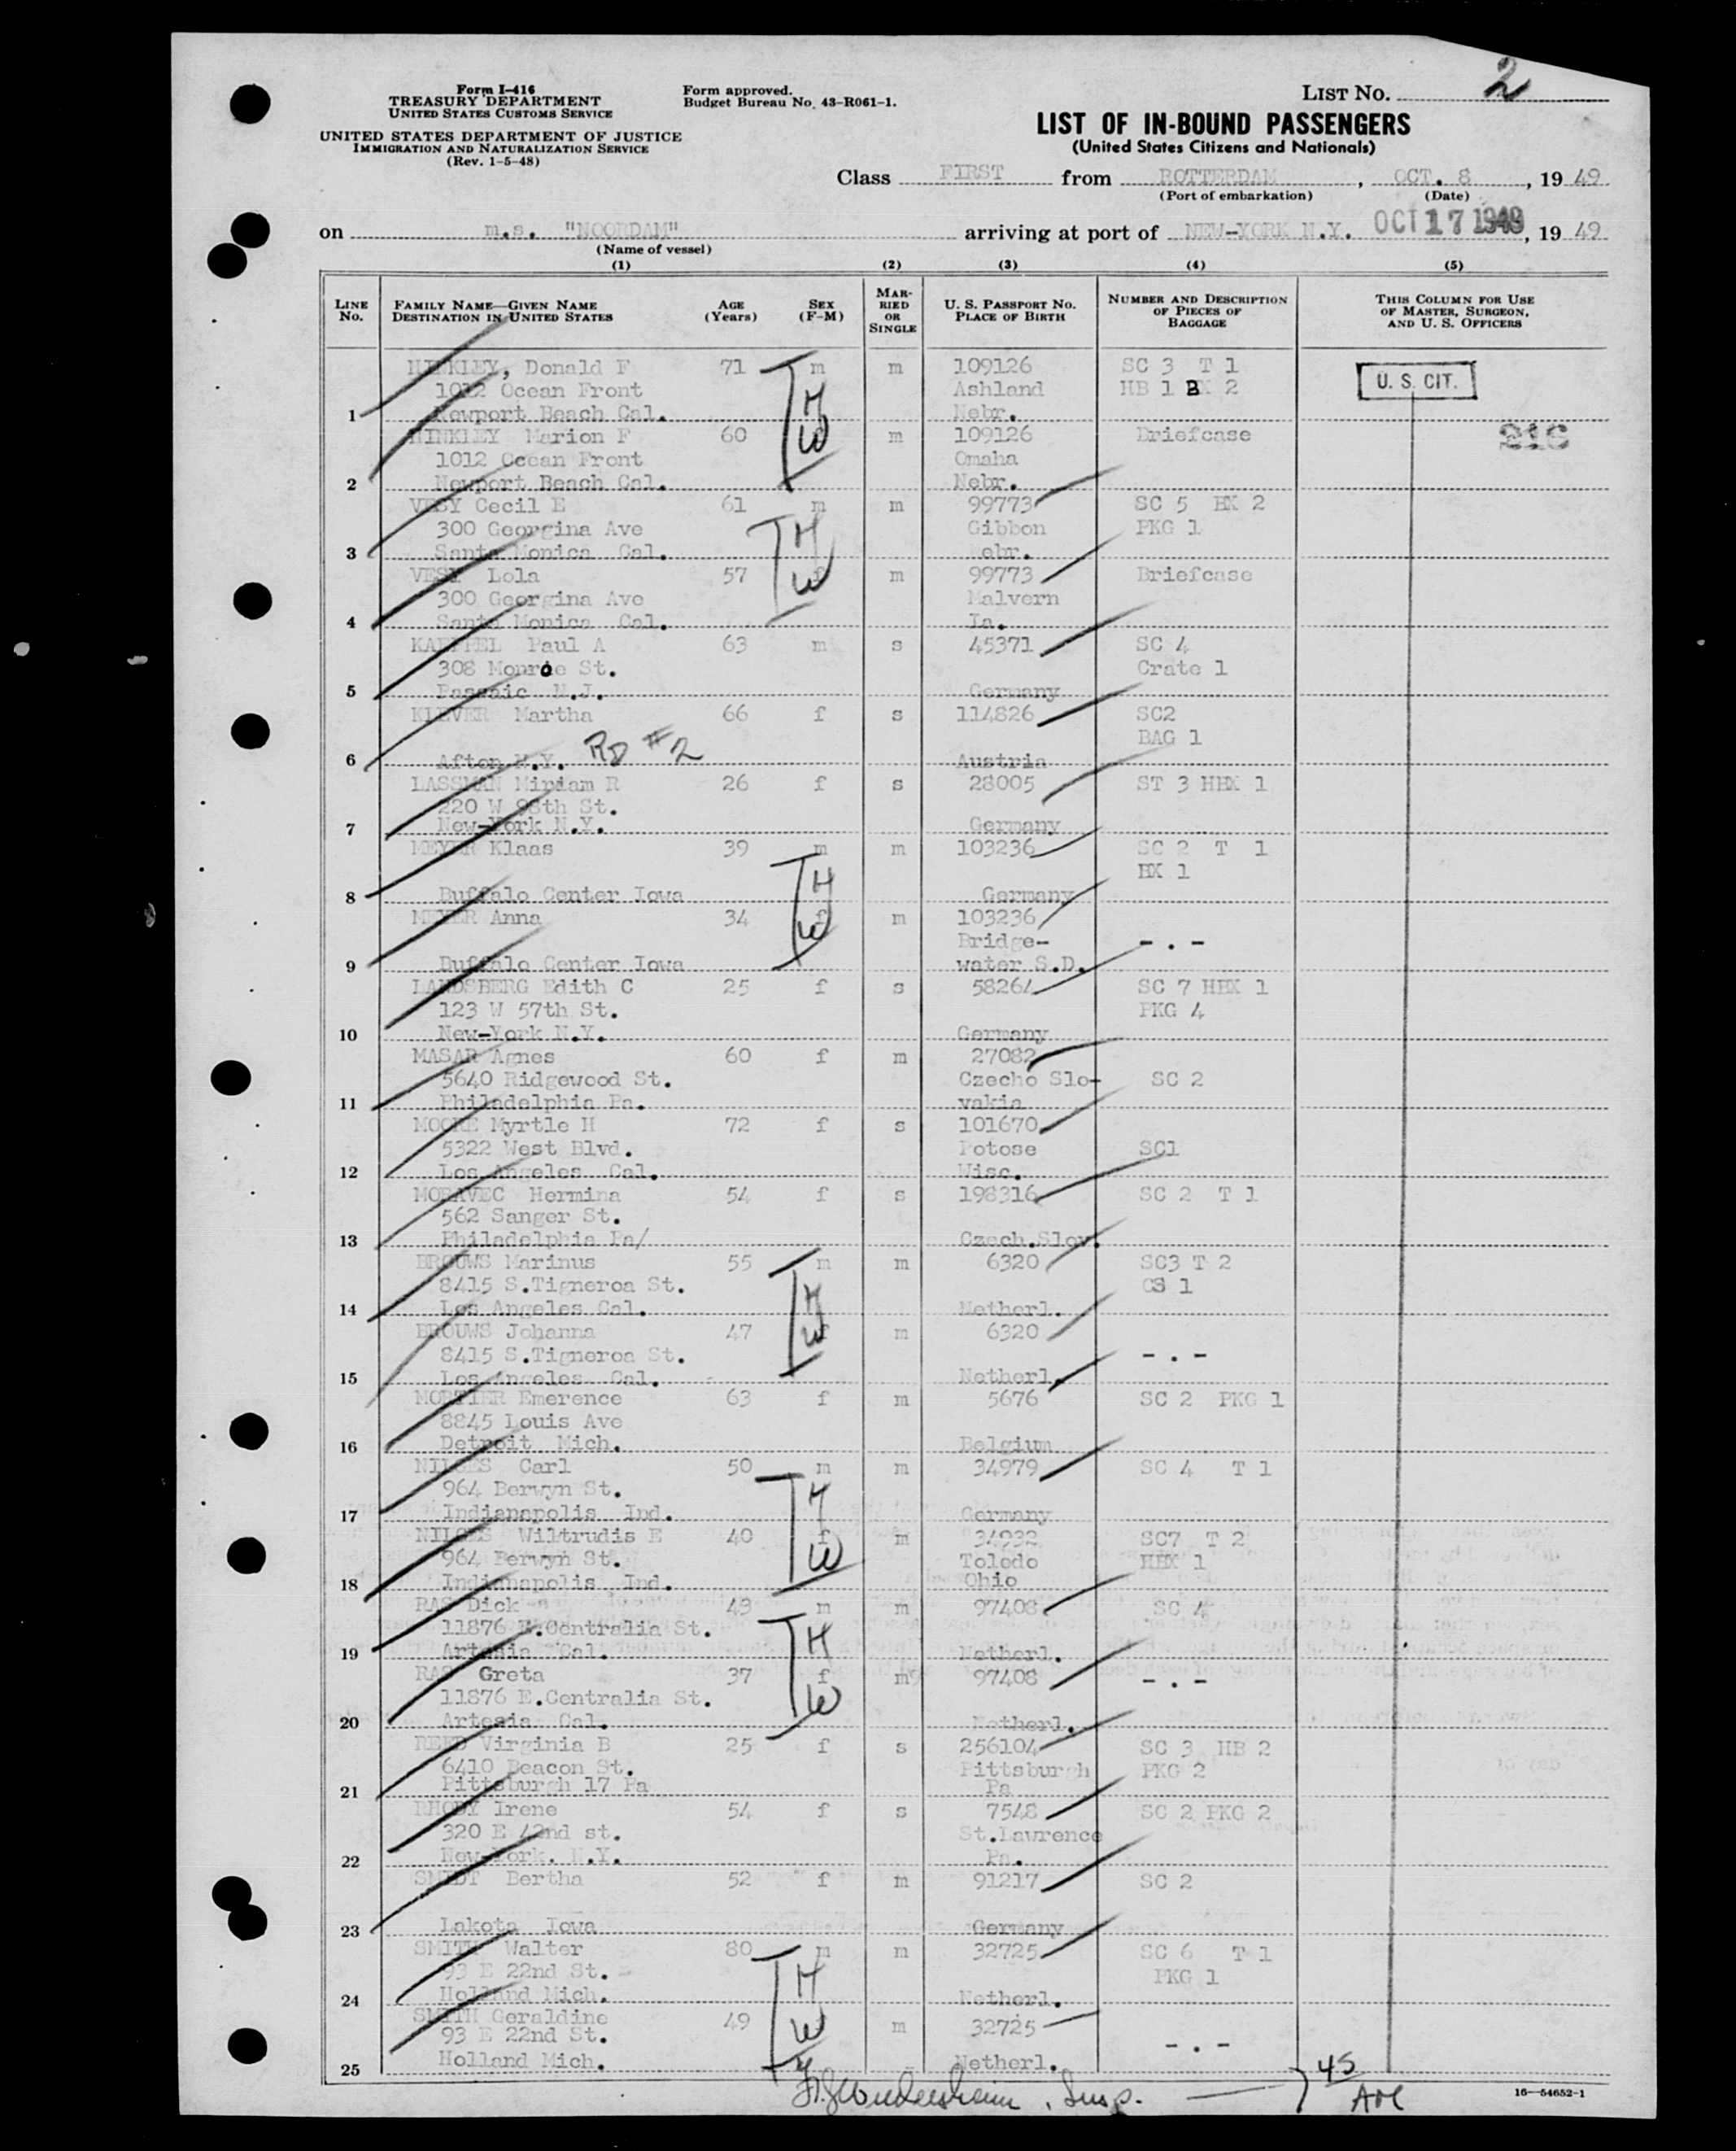 Form I-416
TREASURY DEPARTMENT
UNITED STATES CUSTOMS SERVICE
UNITED STATES DEPARTMENT OF JUSTICE
IMMIGRATION AND NATURALIZATION SERVICE
(Rev. 1-5-48)
Form approved.
Budget Bureau No. 43-R061-1.
LIST NO. 2
LIST OF IN-BOUND PASSENGERS
(United States Citizens and Nationals)
Class FIRST from ROTTERDAM, OCT. 8, 19 49
(Port of embarkation) (Date)
on m.s. "NOORDAM" arriving at port of NEW-YORK N.Y. OCT 17 1949, 19 49
(Name of vessel)
(1) (2) (3) (4) (5)
LINE No. FAMILY NAME—GIVEN NAME DESTINATION IN UNITED STATES AGE (Years) SEX (F-M) MARRIED OR SINGLE U. S. PASSPORT NO. PLACE OF BIRTH NUMBER AND DESCRIPTION OF PIECES OF BAGGAGE THIS COLUMN FOR USE OF MASTER, SURGEON, AND U. S. OFFICERS
HINKLEY, Donald F 71 m m 109126 SC 3 T 1
U. S. CIT.
1012 Ocean Front H Ashland HB 1 BX 2
1 Newport Beach Cal. Nebr.
HINKLEY Marion F 60 W m 109126 Briefcase 216
1012 Ocean Front Omaha
2 Newport Beach Cal. Nebr.
VESY Cecil E 61 m m 99773 SC 5 BX 2
300 Georgina Ave H Gibbon PKG 1
3 Santa Monica Cal. Nebr.
VESY Lola 57 f W m 99773 Briefcase
300 Georgina Ave Malvern
4 Santa Monica Cal. Ia.
KAEPPEL Paul A 63 m s 45371 SC 4
308 Monroe St. Crate 1
5 Passaic N.J. Germany
KLEVER Martha 66 f s 114826 SC2
BAG 1
6 Afton N.Y. RD #2 Austria
LASSMAN Miriam R 26 f s 28005 ST 3 HBX 1
220 W 98th St.
7 New-York N.Y. Germany
MEYER Klaas 39 m m 103236 SC 2 T 1
H BX 1
8 Buffalo Center Iowa Germany
MEYER Anna 34 f W m 103236
Bridge- -.-
9 Buffalo Center Iowa water S.D.
LANDSBERG Edith C 25 f s 58264 SC 7 HBX 1
123 W 57th St. PKG 4
10 New-York N.Y. Germany
MASAR Agnes 60 f m 27082
5640 Ridgewood St. Czecho Slo- SC 2
11 Philadelphia Pa. vakia
MOORE Myrtle H 72 f s 101670
5322 West Blvd. Potose SC1
12 Los Angeles Cal. Wisc.
MORAVEC Hermina 54 f s 198316 SC 2 T 1
562 Sanger St.
13 Philadelphia Pa/ Czech.Slov.
BROUWS Marinus 55 m m 6320 SC3 T 2
8415 S.Tigneroa St. H CS 1
14 Los Angeles Cal. Netherl.
BROUWS Johanna 47 f W m 6320
8415 S.Tigneroa St. -.-
15 Los Angeles Cal. Netherl.
MORTIER Emerence 63 f m 5676 SC 2 PKG 1
8845 Louis Ave
16 Detroit Mich. Belgium
NILGES Carl 50 m m 34979 SC 4 T 1
964 Berwyn St. H
17 Indianapolis Ind. Germany
NILGES Wiltrudis E 40 f m 34932 SC7 T 2
964 Berwyn St. W Toledo HBX 1
18 Indianapolis Ind. Ohio
RAS Dick 43 m m 97408 SC 4
11876 E.Centralia St. H
19 Artesia Cal. Netherl.
RAS Greta 37 f m 97408 -.-
11876 E.Centralia St. W
20 Artesia Cal. Netherl.
REED Virginia B 25 f s 256104 SC 3 HB 2
6410 Beacon St. Pittsburgh PKG 2
21 Pittsburgh 17 Pa Pa
RHODY Irene 54 f s 7548 SC 2 PKG 2
320 E 42nd st. St.Lawrence
22 New-York. N.Y. Pa.
SMIDT Bertha 52 f m 91217 SC 2
23 Lakota Iowa Germany
SMITH Walter 80 m m 32725 SC 6 T 1
93 E 22nd St. H PKG 1
24 Holland Mich. Netherl.
SMITH Geraldine 49 W m 32725
93 E 22nd St. -.-
25 Holland Mich. Netherl.
Insp. 45
16—54652-1